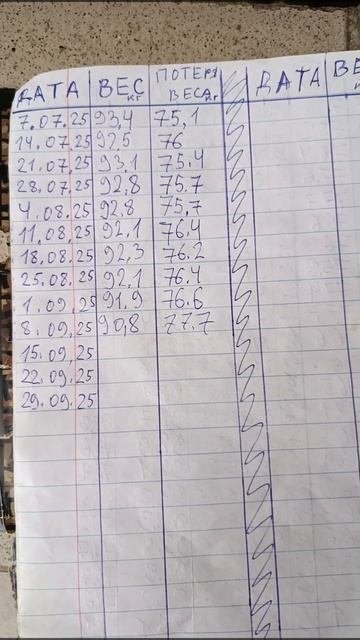 ДАТА ВЕС кг ПОТЕРЯ ВЕСА кг ДАТА ВЕ
7.07.25 93,4 75,1
14.07.25 92,5 76
21.07.25 93,1 75.4
28.07.25 92,8 75.7
4.08.25 92,8 75,7
11.08.25 92,1 76.4
18.08.25 92,3 76.2
25.08.25 92,1 76.4
1.09.25 91.9 76.6
8.09.25 90,8 77.7
15.09.25
22.09.25
29.09.25